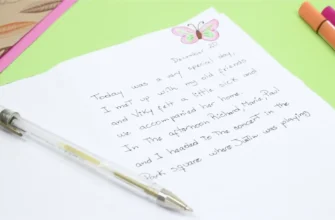 December, 21
Today was a very special day,
I met up with my old friends
and Viky felt a little sick and
we accompanied her home.
In the afternoon Richard, Marie, Paul
and I headed to the concert in the
Park square where Justin was playing